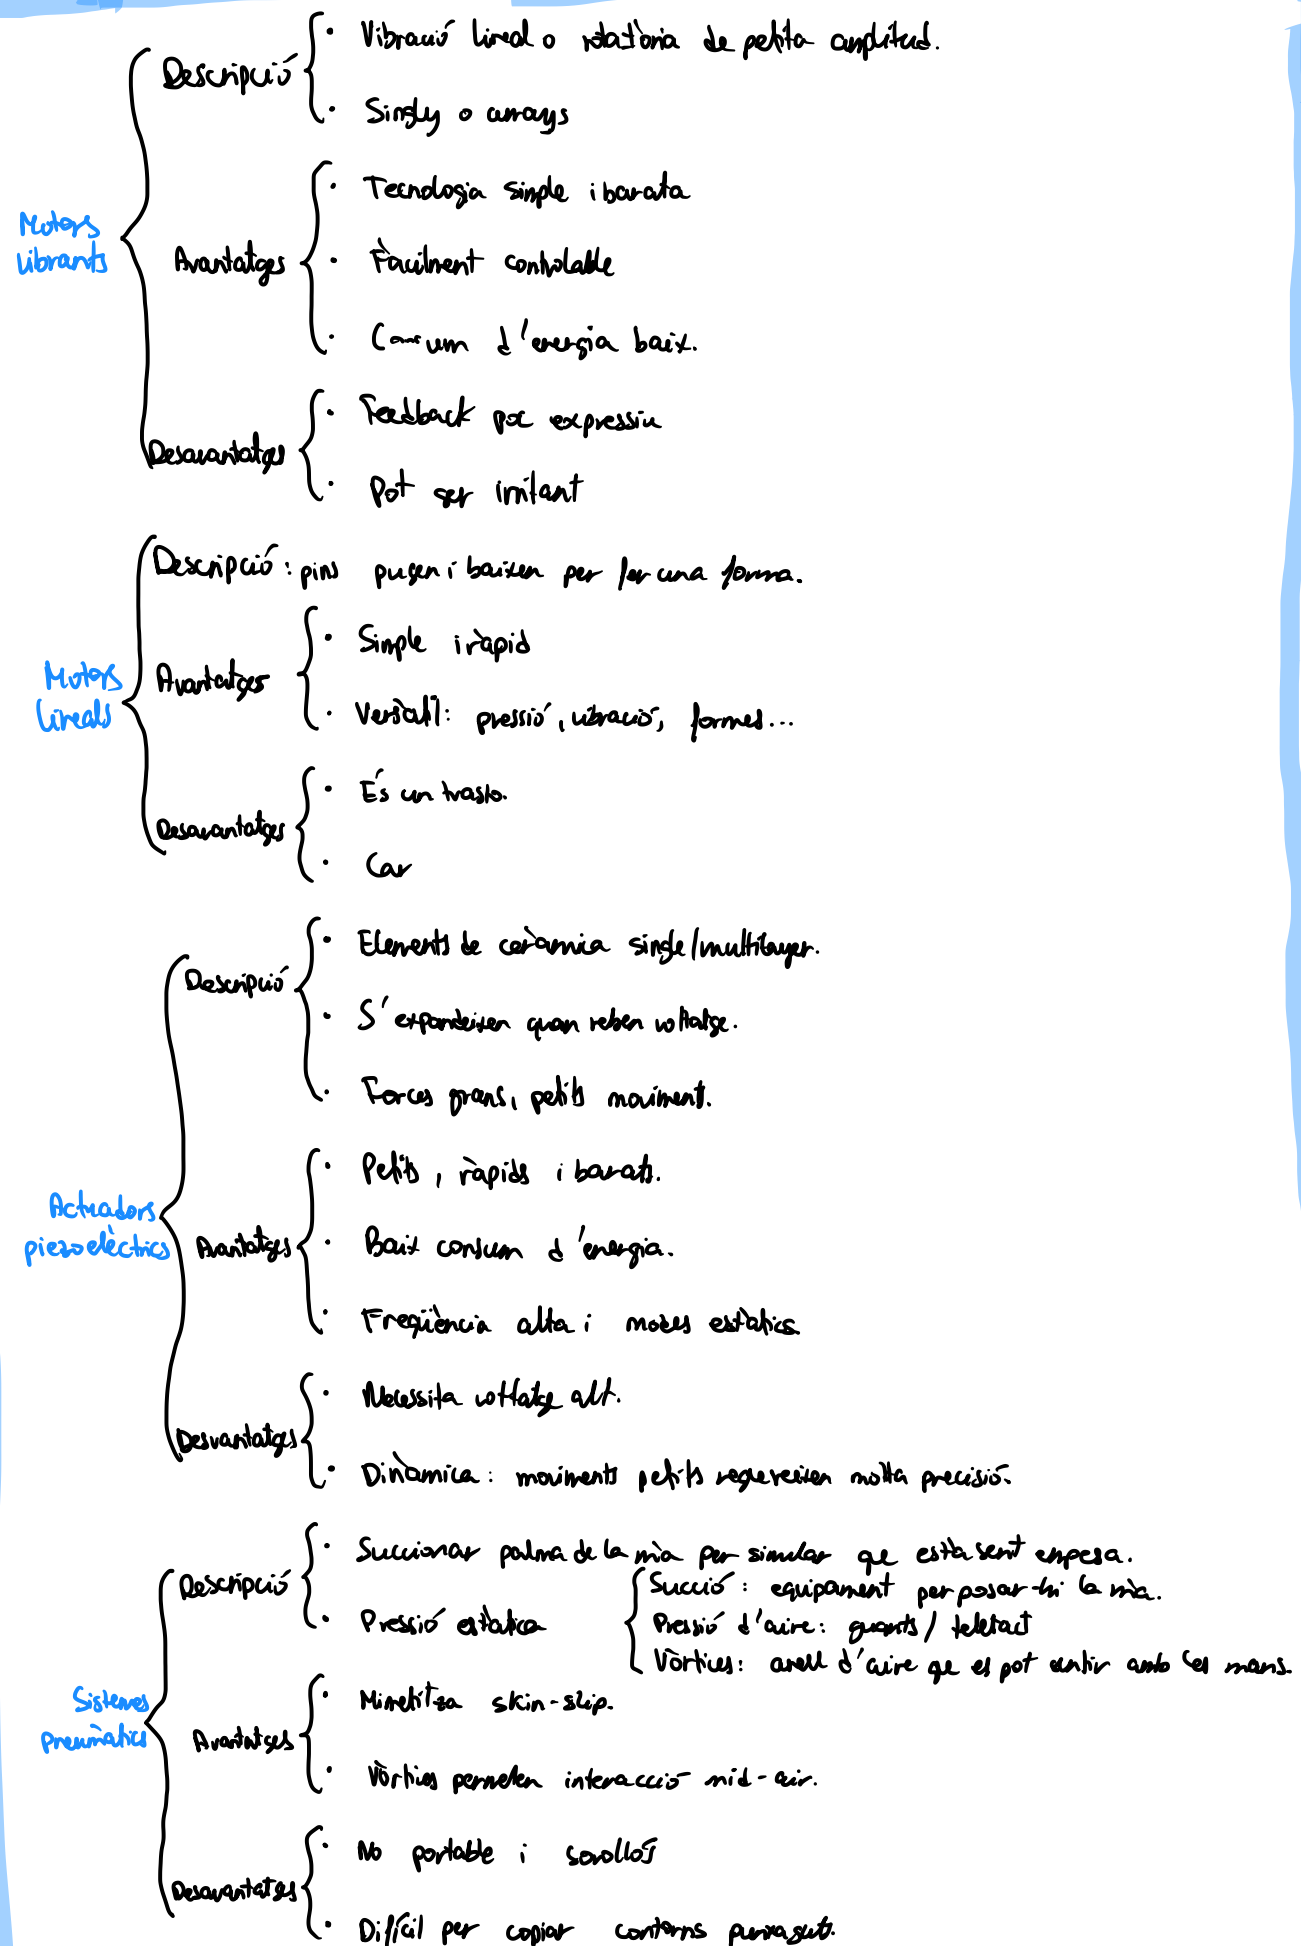 Motors vibrants
Descripció
· Vibració lineal o rotatòria de petita amplitud.
· Singly o arrays
Avantatges
· Tecnologia simple i barata
· Fàcilment controlable
· Consum d'energia baix.
Desavantatges
· Feedback poc expressiu
· Pot ser irritant
Motors lineals
Descripció: pins pugen i baixen per fer una forma.
Avantatges
· Simple i ràpid
· Versàtil: pressió, vibració, formes...
Desavantatges
· És un trasto.
· Car
Actuadors piezoelèctrics
Descripció
· Elements de ceràmica single/multilayer.
· S'expandeixen quan reben voltatge.
· Forces grans, petits moviments.
Avantatges
· Petits, ràpids i barats.
· Baix consum d'energia.
· Freqüència alta i modes estàtics
Desvantatges
· Necessita voltatge alt.
· Dinàmica: moviments petits requereixen molta precisió.
Sistemes pneumàtics
Descripció
· Succionar palma de la mà per simular que està sent empesa.
· Pressió estàtica
Succió: equipament per posar-hi la mà.
Pressió d'aire: guants/teletact
Vòrtices: anell d'aire que es pot sentir amb les mans.
Avantatges
· Mimetitza skin-slip.
· Vòrtices permeten interacció mid-air.
Desavantatges
· No portable i sorollós
· Difícil per copiar contorns punxaguts.